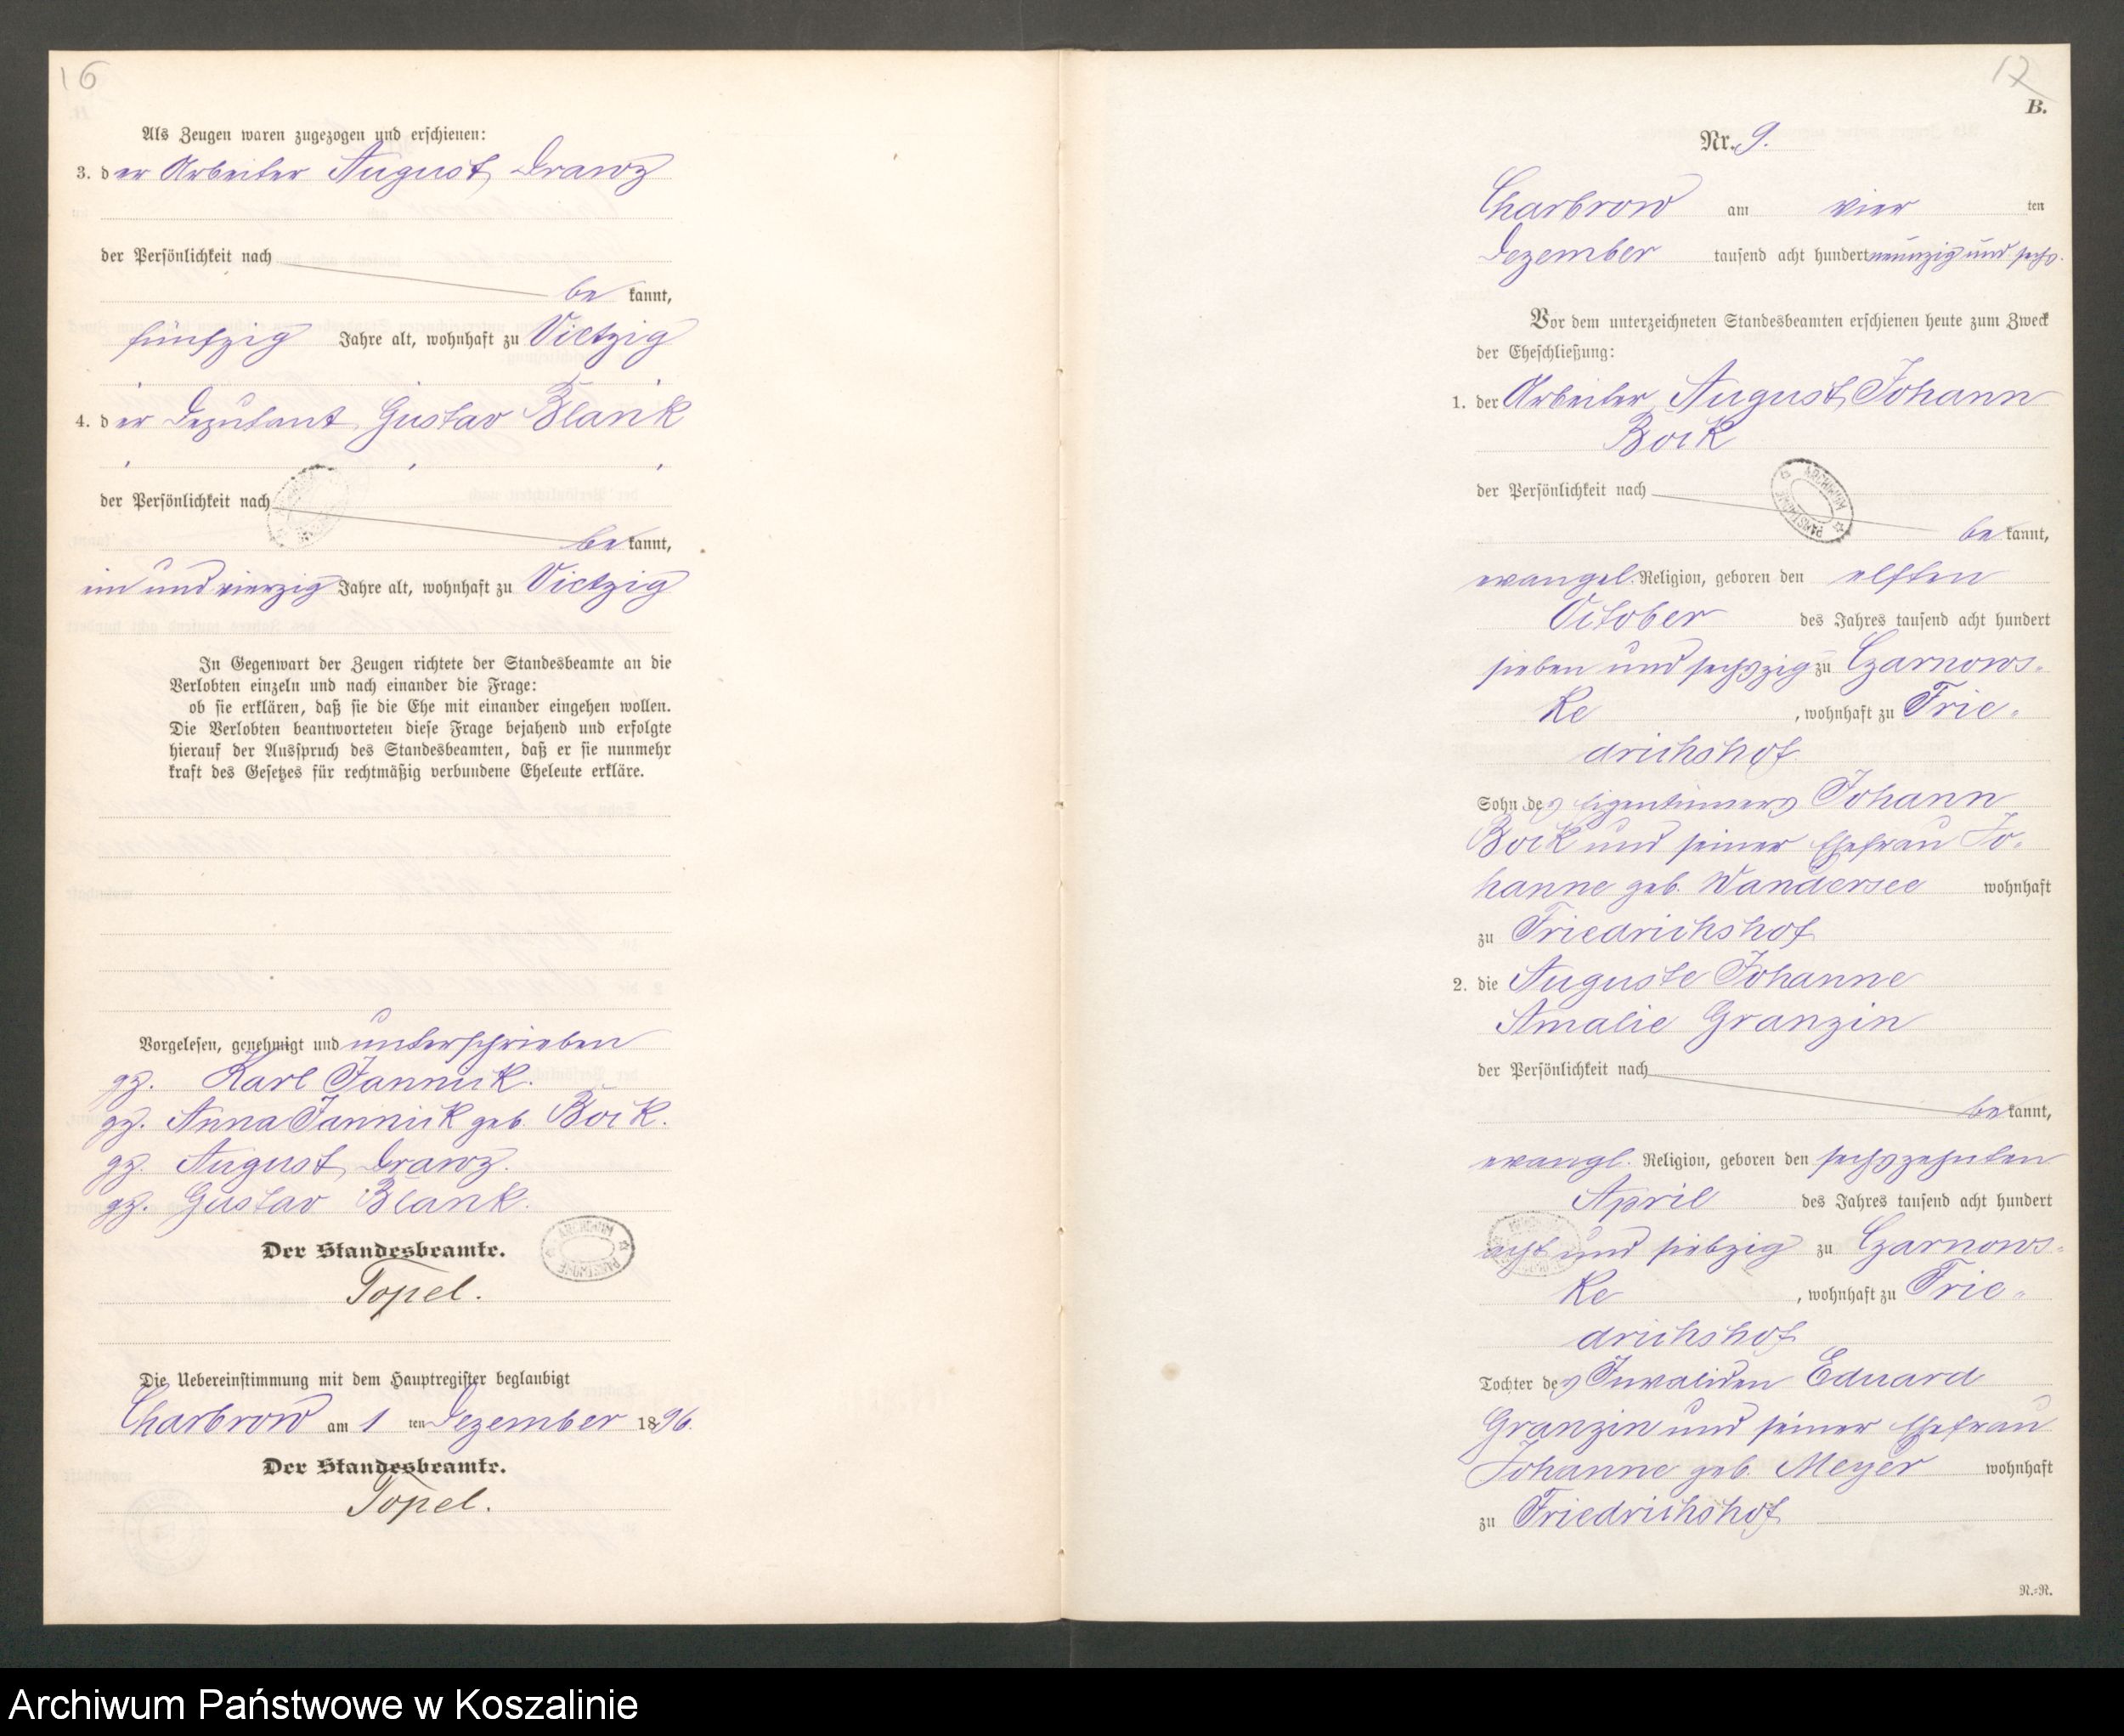 16
Als Zeugen waren zugezogen und erschienen:
3. der Arbeiter August Drawz
der Persönlichkeit nach
be kannt,
fünfzig Jahre alt, wohnhaft zu Vietzig
4. der Deputant Gustav Blank
der Persönlichkeit nach
be kannt,
ein und vierzig Jahre alt, wohnhaft zu Vietzig
In Gegenwart der Zeugen richtete der Standesbeamte an die
Verlobten einzeln und nach einander die Frage:
ob sie erklären, daß sie die Ehe mit einander eingehen wollen.
Die Verlobten beantworteten diese Frage bejahend und erfolgte
hierauf der Ausspruch des Standesbeamten, daß er sie nunmehr
kraft des Gesetzes für rechtmäßig verbundene Eheleute erkläre.
Vorgelesen, genehmigt und unterschrieben
gz. Karl Jannick.
gz. Anna Jannick geb. Bock.
gz. August Drawz.
gz. Gustav Blank.
Der Standesbeamte.
ARCHIWUM PAŃSTWOWE
Topel.
Die Uebereinstimmung mit dem Hauptregister beglaubigt
Charbrow am 1 ten Dezember 1896.
Der Standesbeamte.
Topel.
17
B.
Nr. 9.
Charbrow am vier ten
Dezember tausend acht hundert neunzig und sechs.
Vor dem unterzeichneten Standesbeamten erschienen heute zum Zweck
der Eheschließung:
1. der Arbeiter August Johann
Bock
der Persönlichkeit nach
ARCHIWUM PAŃSTWOWE
be kannt,
evangel. Religion, geboren den elften
October des Jahres tausend acht hundert
sieben und sechszig zu Czarnows-
ke , wohnhaft zu Frie-
drichshof.
Sohn des Eigentümers Johann
Bock und seiner Ehefrau Jo-
hanne geb. Wandersee wohnhaft
zu Friedrichshof
2. die Auguste Johanne
Amalie Granzin
der Persönlichkeit nach
be kannt,
evangl. Religion, geboren den sechszehnten
April des Jahres tausend acht hundert
acht und siebzig zu Czarnows-
ke , wohnhaft zu Frie-
drichshof
Tochter des Invaliden Eduard
Granzin und seiner Ehefrau
Johanne geb. Meyer wohnhaft
zu Friedrichshof
N.=N.
Archiwum Państwowe w Koszalinie